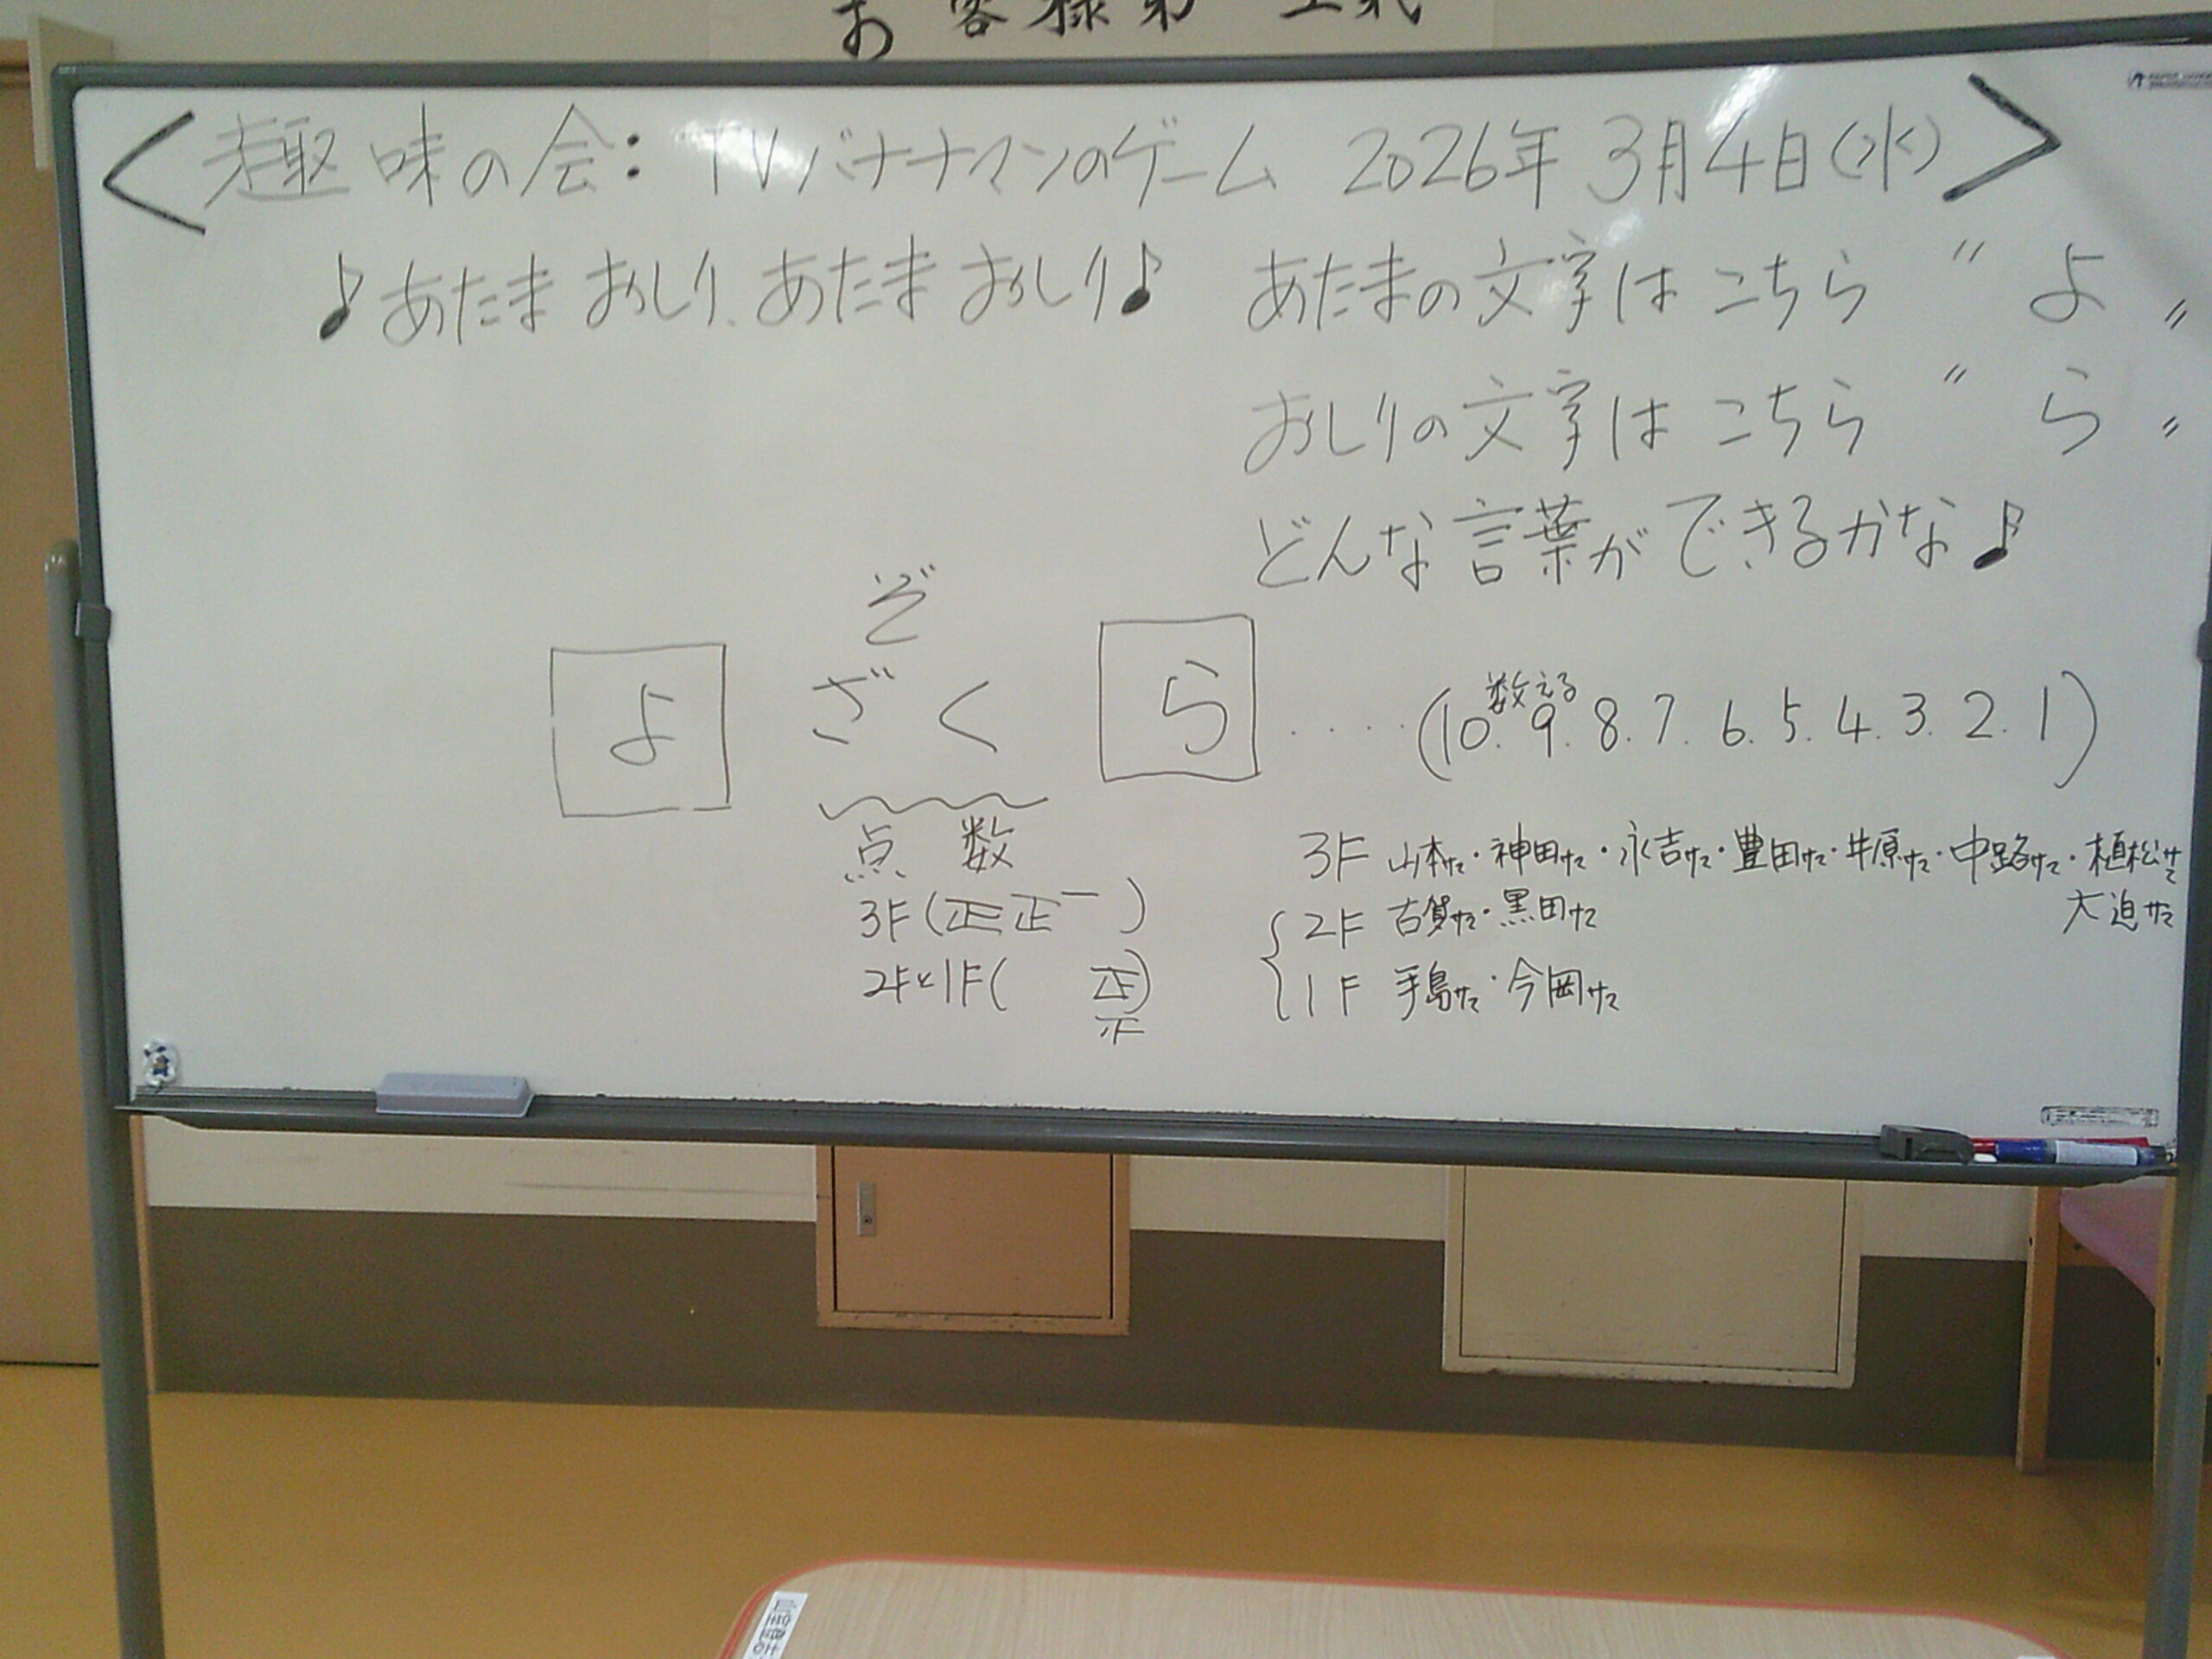 お客様第一主義
<趣味の会:TVバナナマンのゲーム 2026年3月4日(水)>
♪あたまおしり、あたまおしり♪ あたまの文字はこちら〝よ〟
おしりの文字はこちら〝ら〟
どんな言葉ができるかな♪
ぞ
よ ざく ら ‥‥(10.9.8.7.6.5.4.3.2.1)
数える
点数
3F(正正一)
2Fと1F( 正
正)
3F 山本サマ・神田サマ・永吉サマ・豊田サマ・井原サマ・中路サマ・植松サマ
大迫サマ
2F 古賀サマ・黒田サマ
1F 手島サマ・今岡サマ